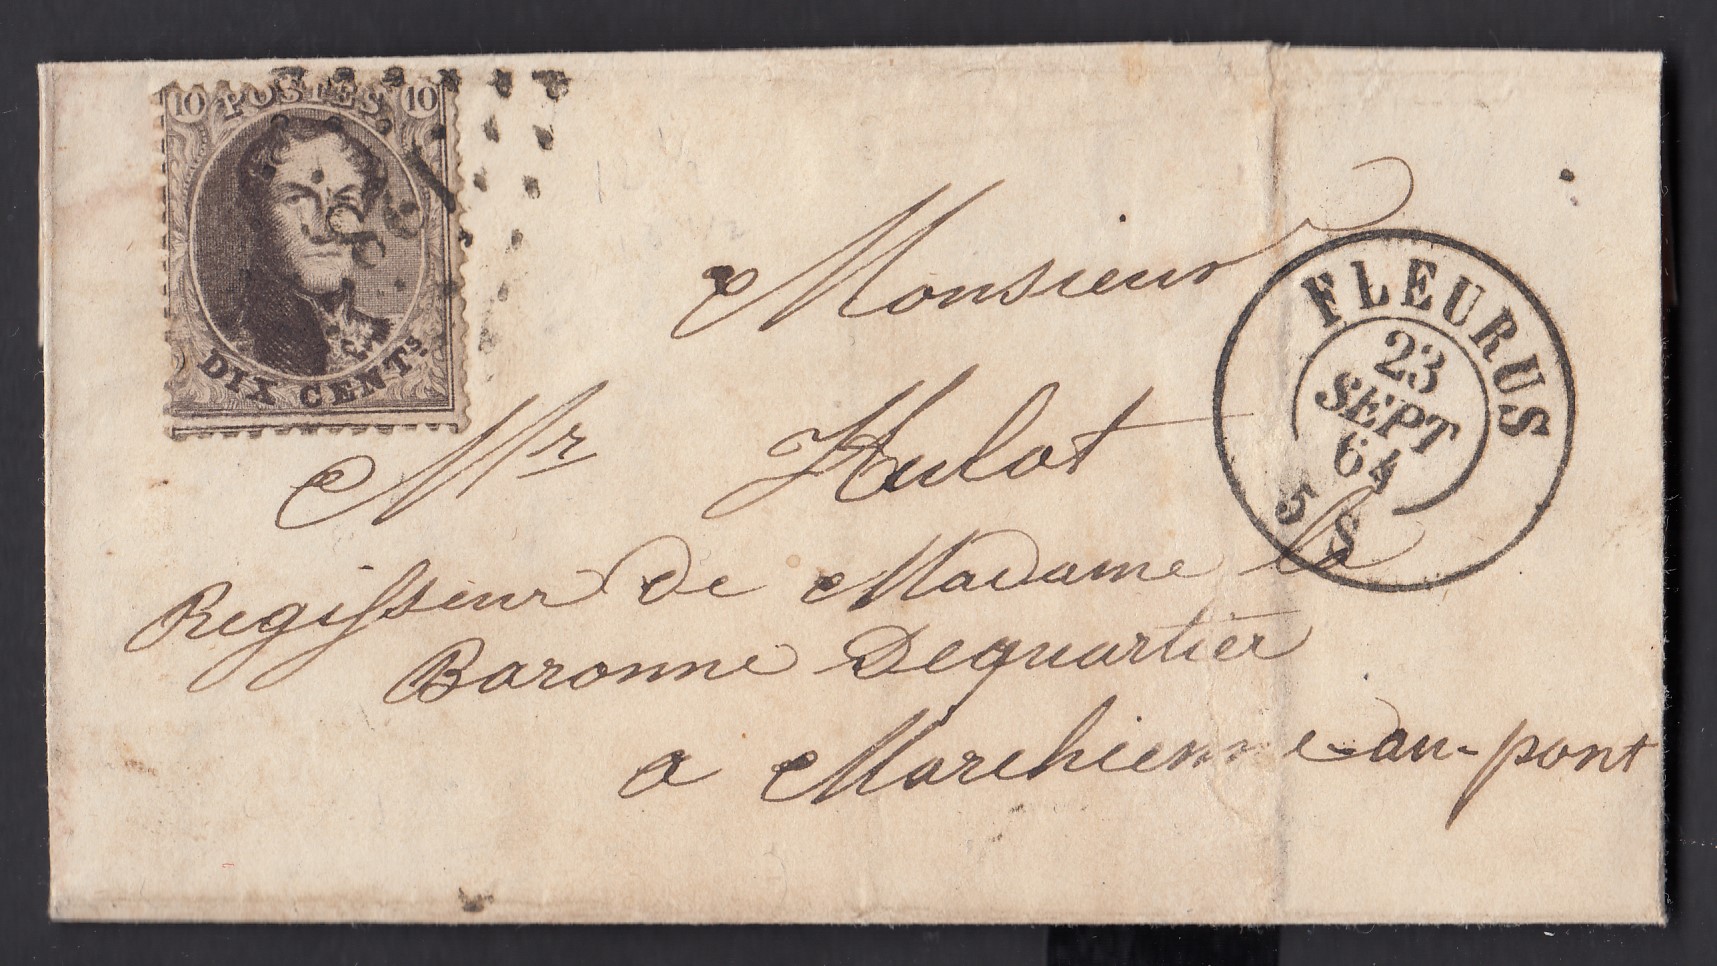 10 POSTES 10
DIX CENTS
Monsieur
FLEURUS
23
SEPT
64
5 S
Mr Hulot
Regisseur de Madame la
Baronne Dequartier
a Marchienne-au-pont